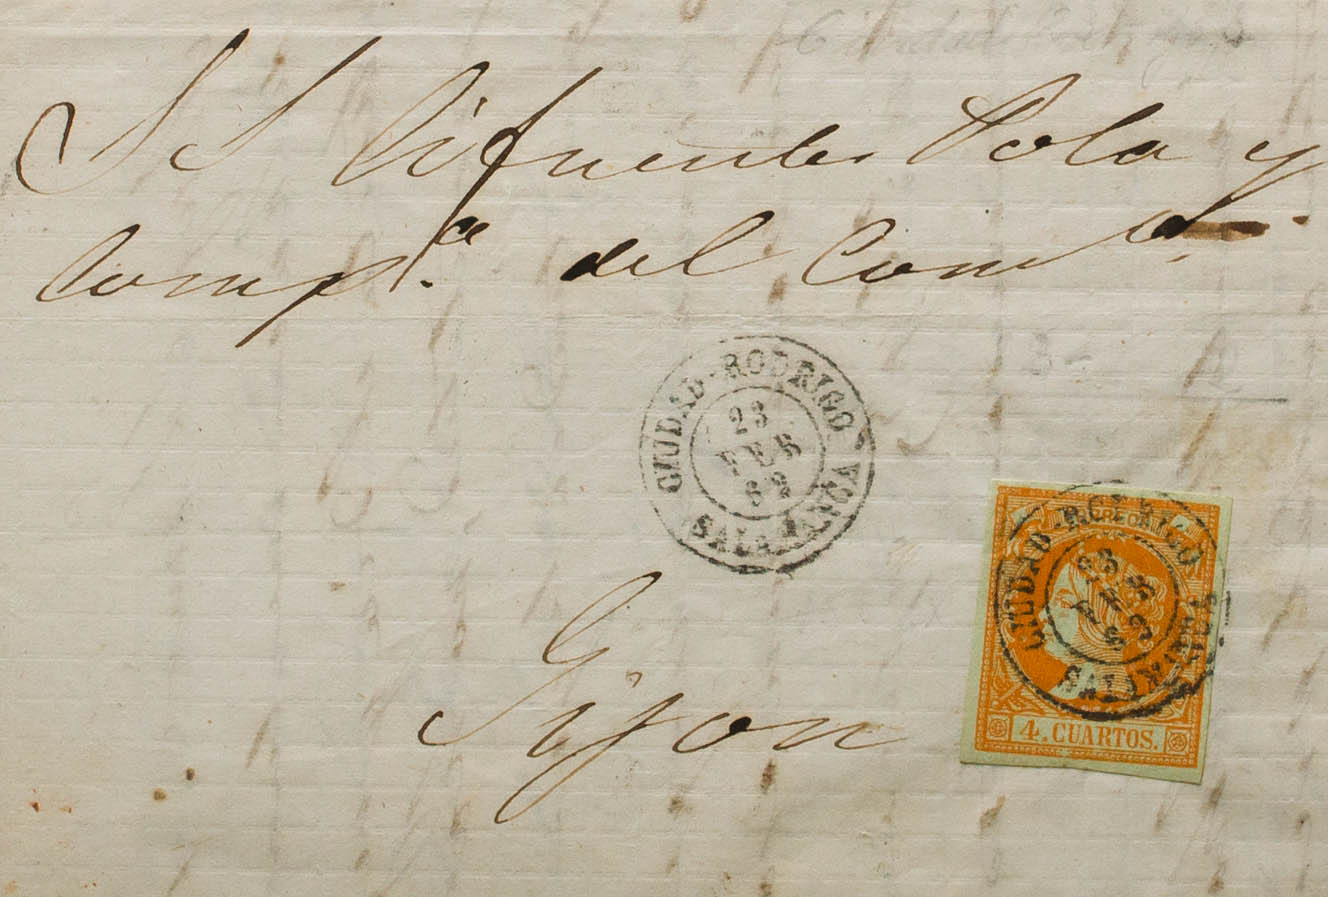 S S Cifuentes Pola y
Comp.ª del Com.º
CIUDAD-RODRIGO
23
FEB
62
SALAMANCA
Gijon
CORREOS
CIUDAD-RODRIGO
23
FEB
62
SALAMANCA
4. CUARTOS.